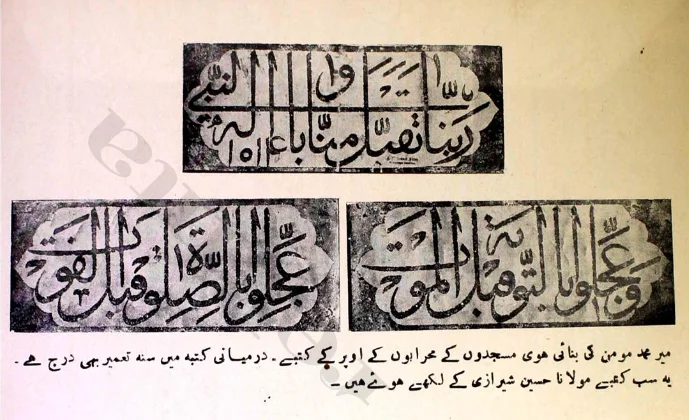 ربنا تقبل منا بالنبي وآله
وعجلوا بالتوبة قبل الموت
عجلوا بالصلوة قبل الفوت
میر محمد مومن کی بنائی ہوی مسجدوں کے محرابوں کے اوپر کے کتبے ۔ درمیانی کتبہ میں سنہ تعمیر بھی درج ہے ۔
یہ سب کتبے مولانا حسین شیرازی کے لکھے ہوئے ہیں ۔